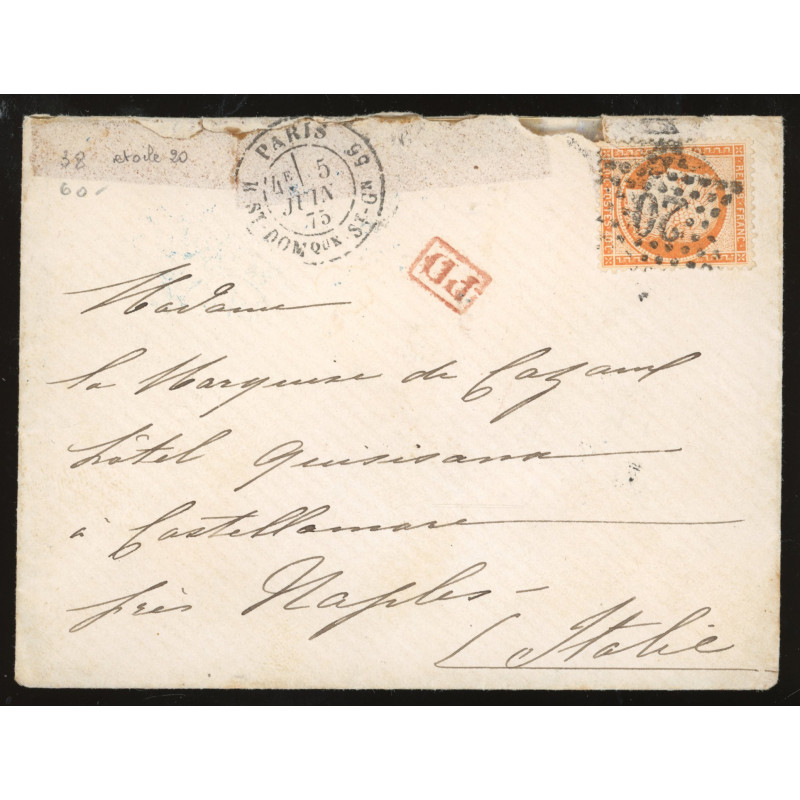 38 etoile 20
60-
PARIS
4E 5
JUIN
75
R. ST DOMQUE ST-GN 56
PD
REPUB FRANC
20
Madame
la Marquise de
hôtel Quisisana
à Castellamare
près Naples-
Italie